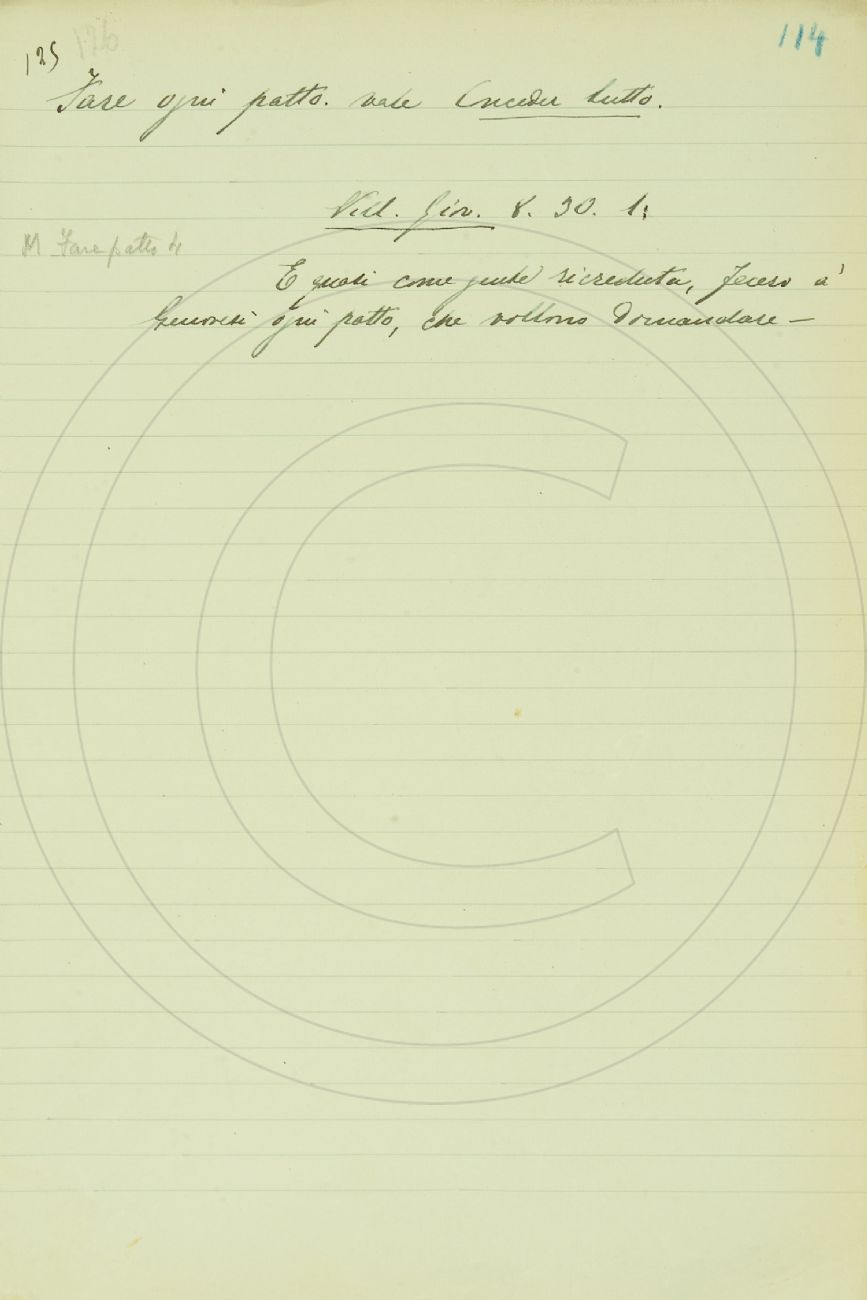 125 126 114
Fare ogni patto. vale Conceder tutto.
Vill. Giov. 8. 30. 1:
M Fare patto 4
E quasi come gente ricreduta, fecero a'
Genovesi ogni patto, che vollono domandare —